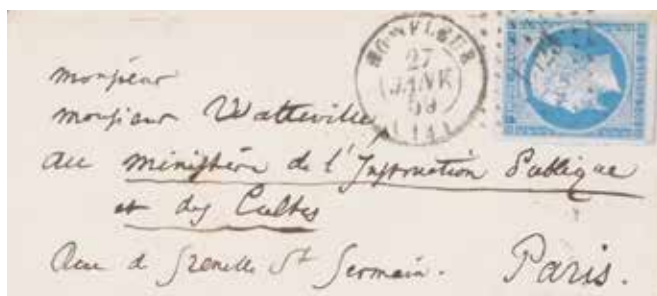 HONFLEUR
27
JANV
59
(14)
monsieur
monsieur Watteville
au ministère de l'Instruction Publique
et des Cultes
Rue de Grenelle St Germain.
Paris.